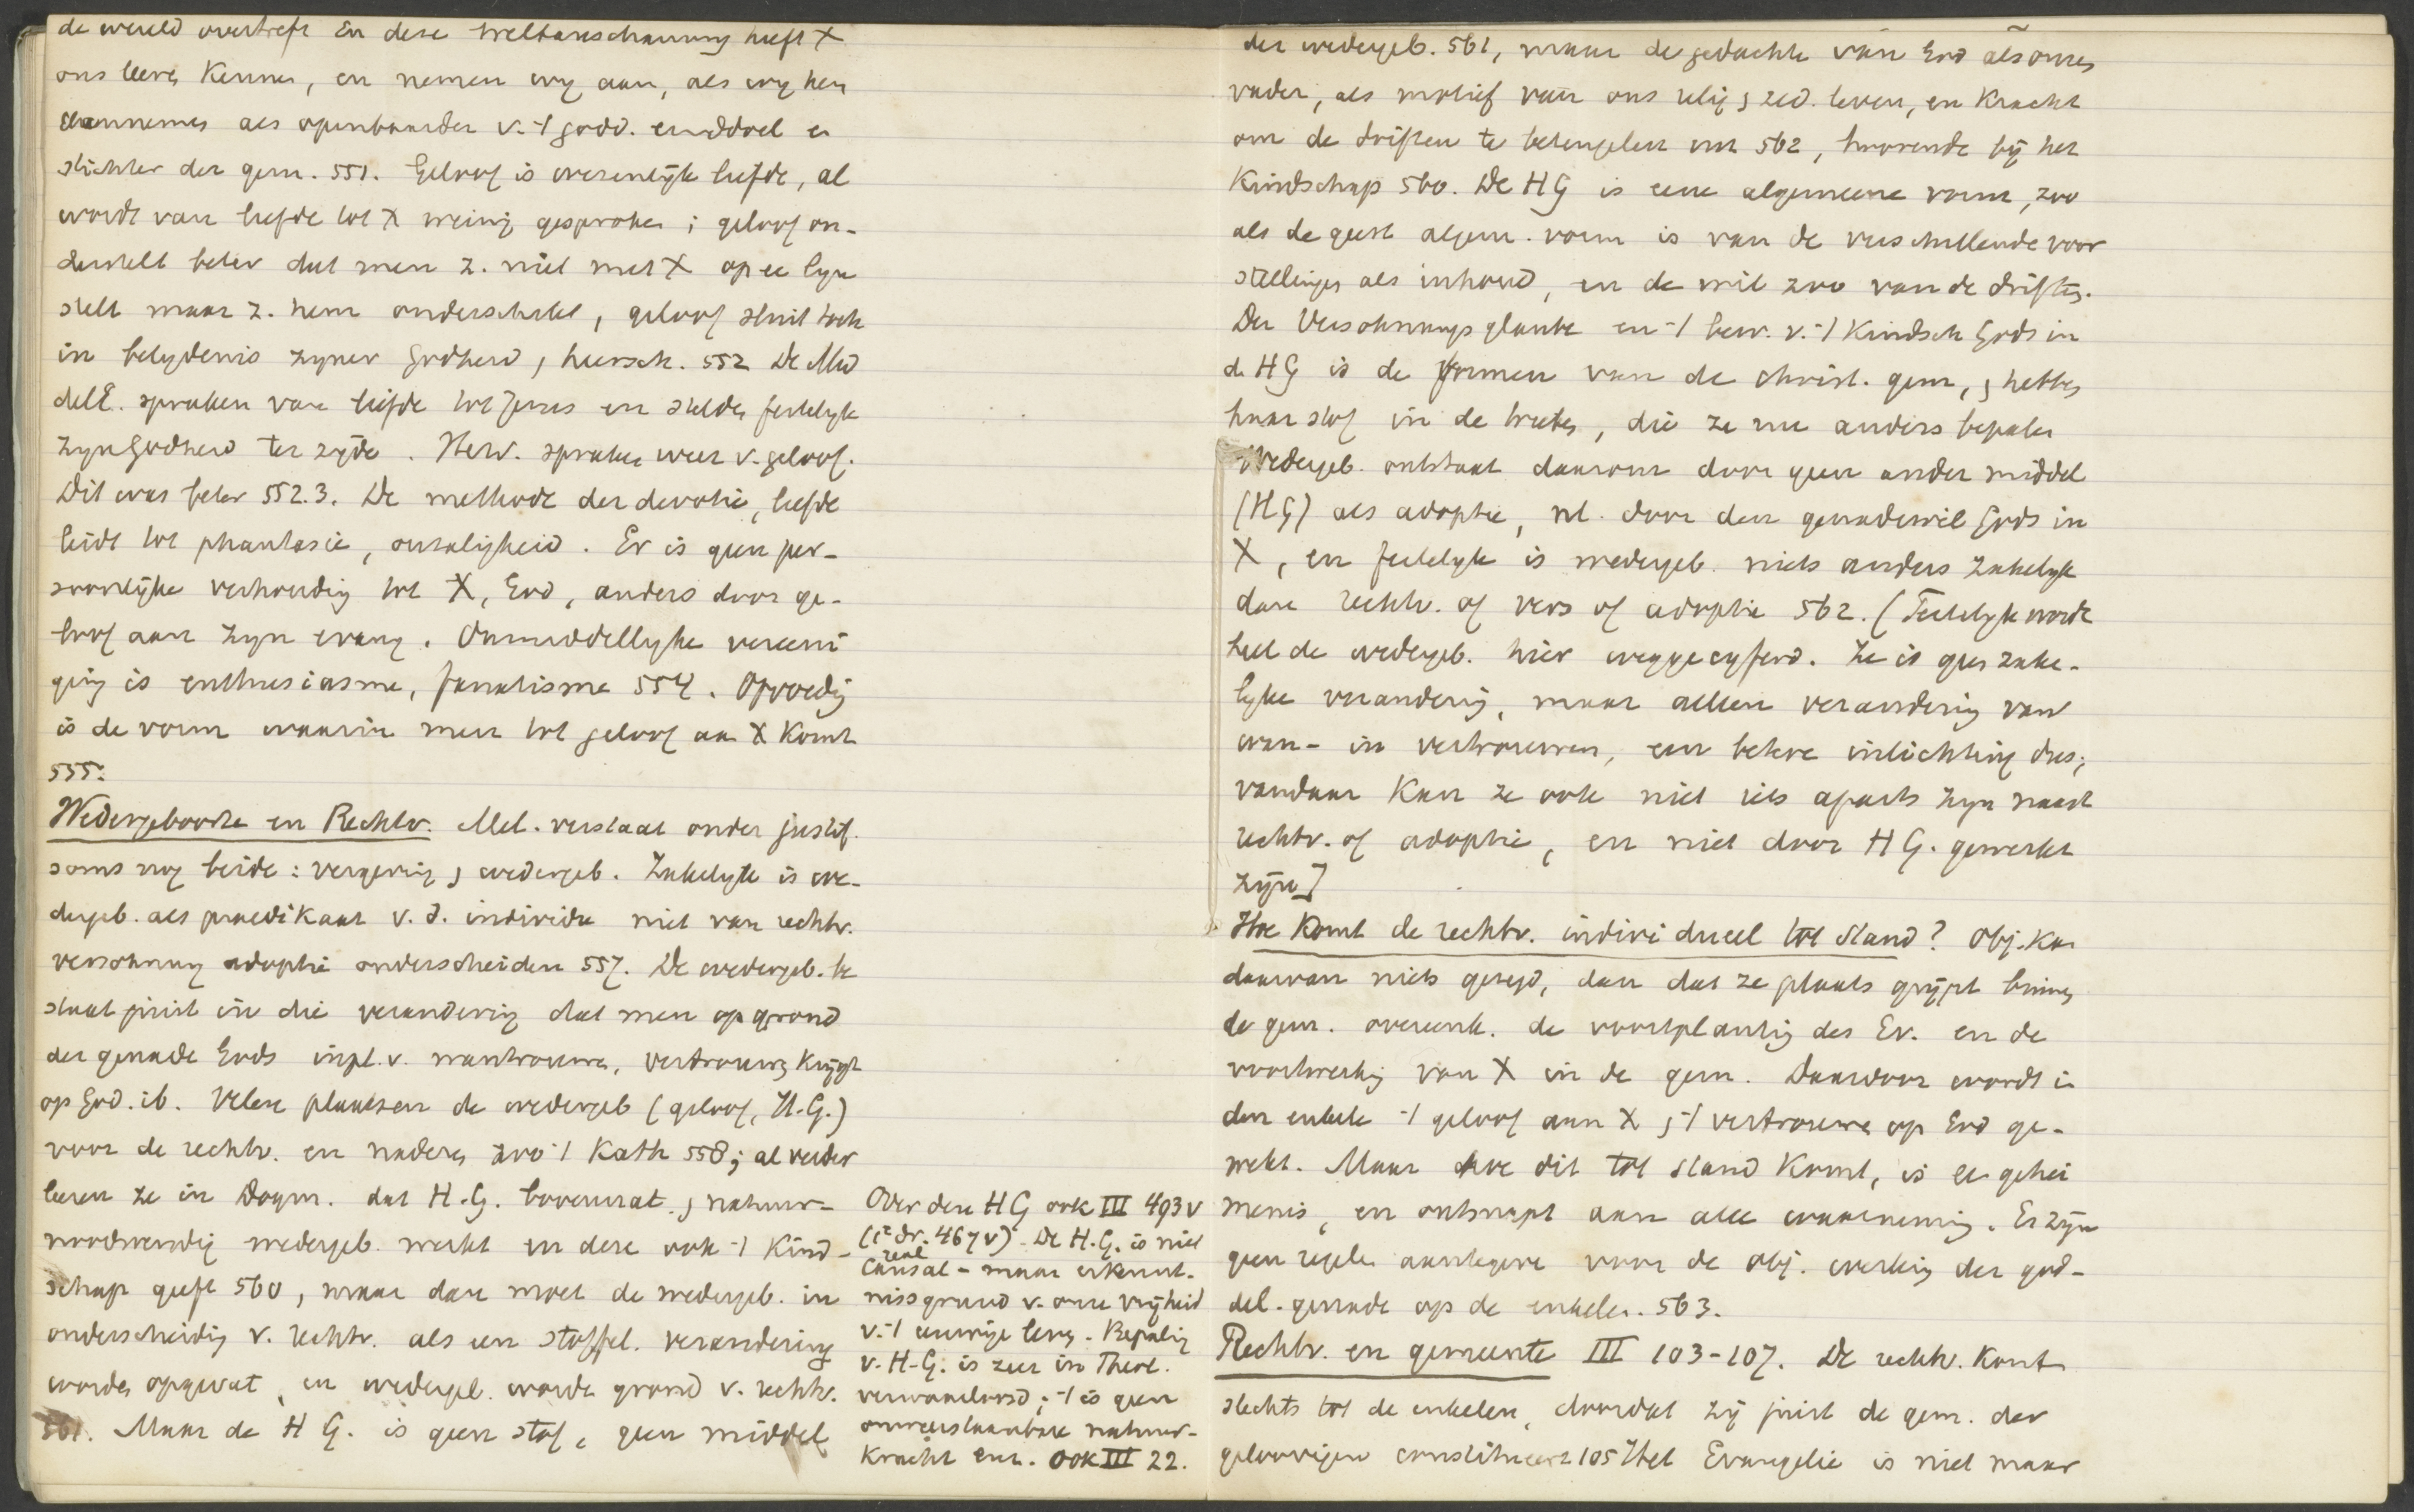 de wereld overtreft En deze Weltanschauung heeft X
ons leeren kennen, en nemen wy aan, als wy hem
aannemen als openbaarder v. -1 godd. einddoel en
stichter der gem. 551. Geloof is wezenlijk liefde, al
wordt van liefde tot X weinig gesproken; geloof on-
derstelt beter dat men z. niet met X op ee lyn
stelt maar z. hem onderschikt, geloof sluit toch
in belydenis zyner Godheid, heersch. 552 De Mid
delE. spraken van liefde tot Jezus en stelden feitelyk
zyn Godheid ter zijde. Herv. spraken weer v. geloof.
Dit was beter 552.3. De methode der devotie, liefde
leidt tot phantasie, onzaligheid. Er is geen per-
soonlijke verhouding tot X, God, anders door ge-
loof aan zyn evang. Onmiddellyke vereeni
ging is enthusiasme, fanatisme 554. Opvoedig
is de vorm waarin men tot geloof aan X komt
555.
Wedergeboorte en Rechtv. Mel. verstaat onder justif.
soms nog beide: vergeving, wedergeb. Zakelyk is we-
dergeb. als praedikaat v. d. individu niet van rechtv.
versohnung adoptie onderscheiden 557. De wedergeb. be
staat juist in die verandering dat men op grond
der genade Gods in pl. v. wantrouwen, vertrouwen krijgt
op God. ib. Velen plaatsen de wedergeb (geloof, H.G.)
voor de rechtv. en naderen zoo -1 Kath 558; al verder
leeren ze in Dogm. dat H.G. bovennat. , natuur-
noodwendig wedergeb. werkt en deze ook -1 kind-
schap geeft 560, maar dan moet de wedergeb. in
onderscheidig v. rechtv. als een stoffel. verandering
worden opgevat, en wedergeb. worde grond v. rechtv.
561. Maar de H G. is geen stof, geen middel
Over den HG ook III 493v
(1e dr. 467v) - De H.G. is niet
real
causal - maar erkennt-
nissgrund v. onze vrijheid
v. -1 eeuwige leven. Bepaling
v. H-G. is zeer in Theol.
verwaarloosd; -1 is geen
onweerstaanbare natuur-
kracht enz. ook III 22.
der wedergeb. 561, maar de gedachte van God als onzen
vader, als motief van ons relig , zed. leven, en kracht
om de driften te beteugelen enz 562, hoorende bij het
Kindschap 560. De HG is eene algemeene vorm, zoo
als de geest algem. vorm is van de verschillende voor
stellingen als inhoud, en de wil zoo van de driften.
Der Versohnungsglaube en -1 bew. v. -1 Kindsch Gods in
d. HG is de vormen van de christ. gem, , hebben
haar stof in de , die ze nu anders bepalen
Wedergeb. ontstaat daarom door geen ander middel
(HG) als adoptie, nl. door den genadewil Gods in
X, en feitelyk is wedergeb. niets anders zakelyk
dan rechtv. of vers of adoptie 562. (Feitelyk wordt
heel de wedergeb. hier weggecyferd. Ze is geen zake-
lyke verandering, maar alleen verandering van
wan- in vertrouwen, een betere inlichting dus;
vandaar kan ze ook niet iets aparts zyn naast
rechtv. of adoptie, en niet door HG. gewerkt
zijn]
Hoe komt de rechtv. individueel tot stand? Obj. kan
daarvan niets gezegd, dan dat ze plaats grijpt binnen
de gem. overeenk. de voortplantig des Ev. en de
voortwerkig van X in de gem. Daardoor wordt in
den enkele -1 geloof aan X , -1 vertrouwen op God ge-
wekt. Maar hoe dit tot stand komt, is ee gehei
menis, en ontsnapt aan alle waarneming. Er zijn
geen regelen aantegeven voor de obj. werking der god-
del. genade op de enkelen. 563.
Rechtv. en gemeente III 103-107. De rechtv. komt
slechts tot de enkelen, doordat zij juist de gem. der
geloovigen constitueert 105 Het Evangelie is niet maar